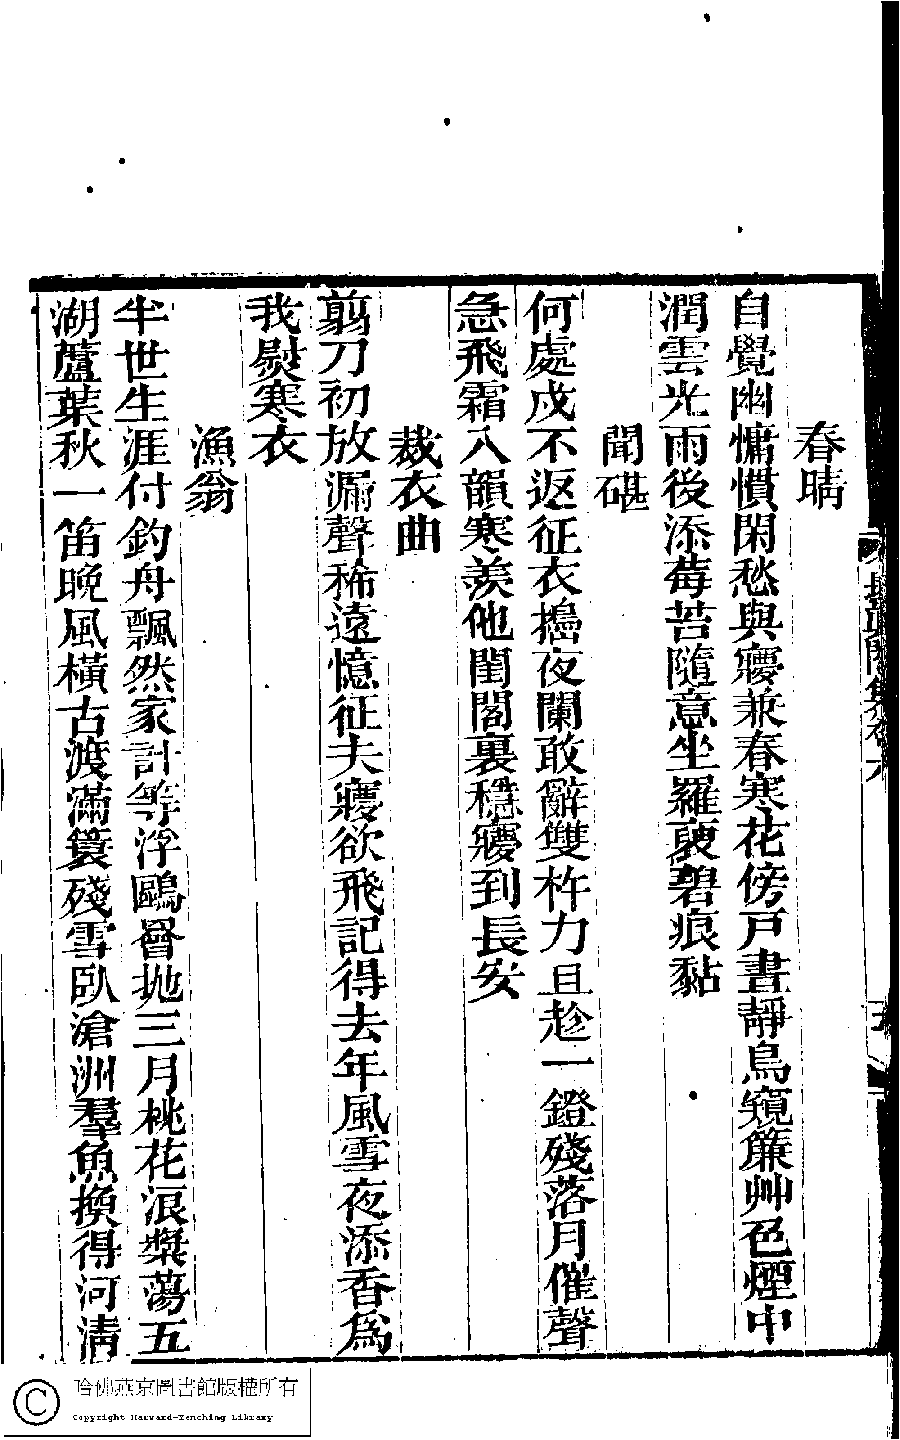 春晴
自覺幽慵慣閑愁與寢兼春寒花傍戸晝靜鳥窺簾艸色煙中
潤雲光雨後添莓苔隨意坐羅襖碧痕黏
聞碪
何處戍不返征衣搗夜闌敢辭雙杵力且趁一鐙殘落月催聲
急飛霜入韻寒羨他閨閣裏穩寢到長安
裁衣曲
翦刀初放漏聲稀遠憶征夫寢欲飛記得去年風雪夜添香爲
我熨寒衣
漁翁
半世生涯付釣舟飄然家計等浮鷗罾抛三月桃花浪槳蕩五
湖蘆葉秋一笛晚風橫古渡滿簑殘雪臥滄洲羣魚換得河清
哈佛燕京圖書館版權所有
Copyright Harvard-Yenching Library